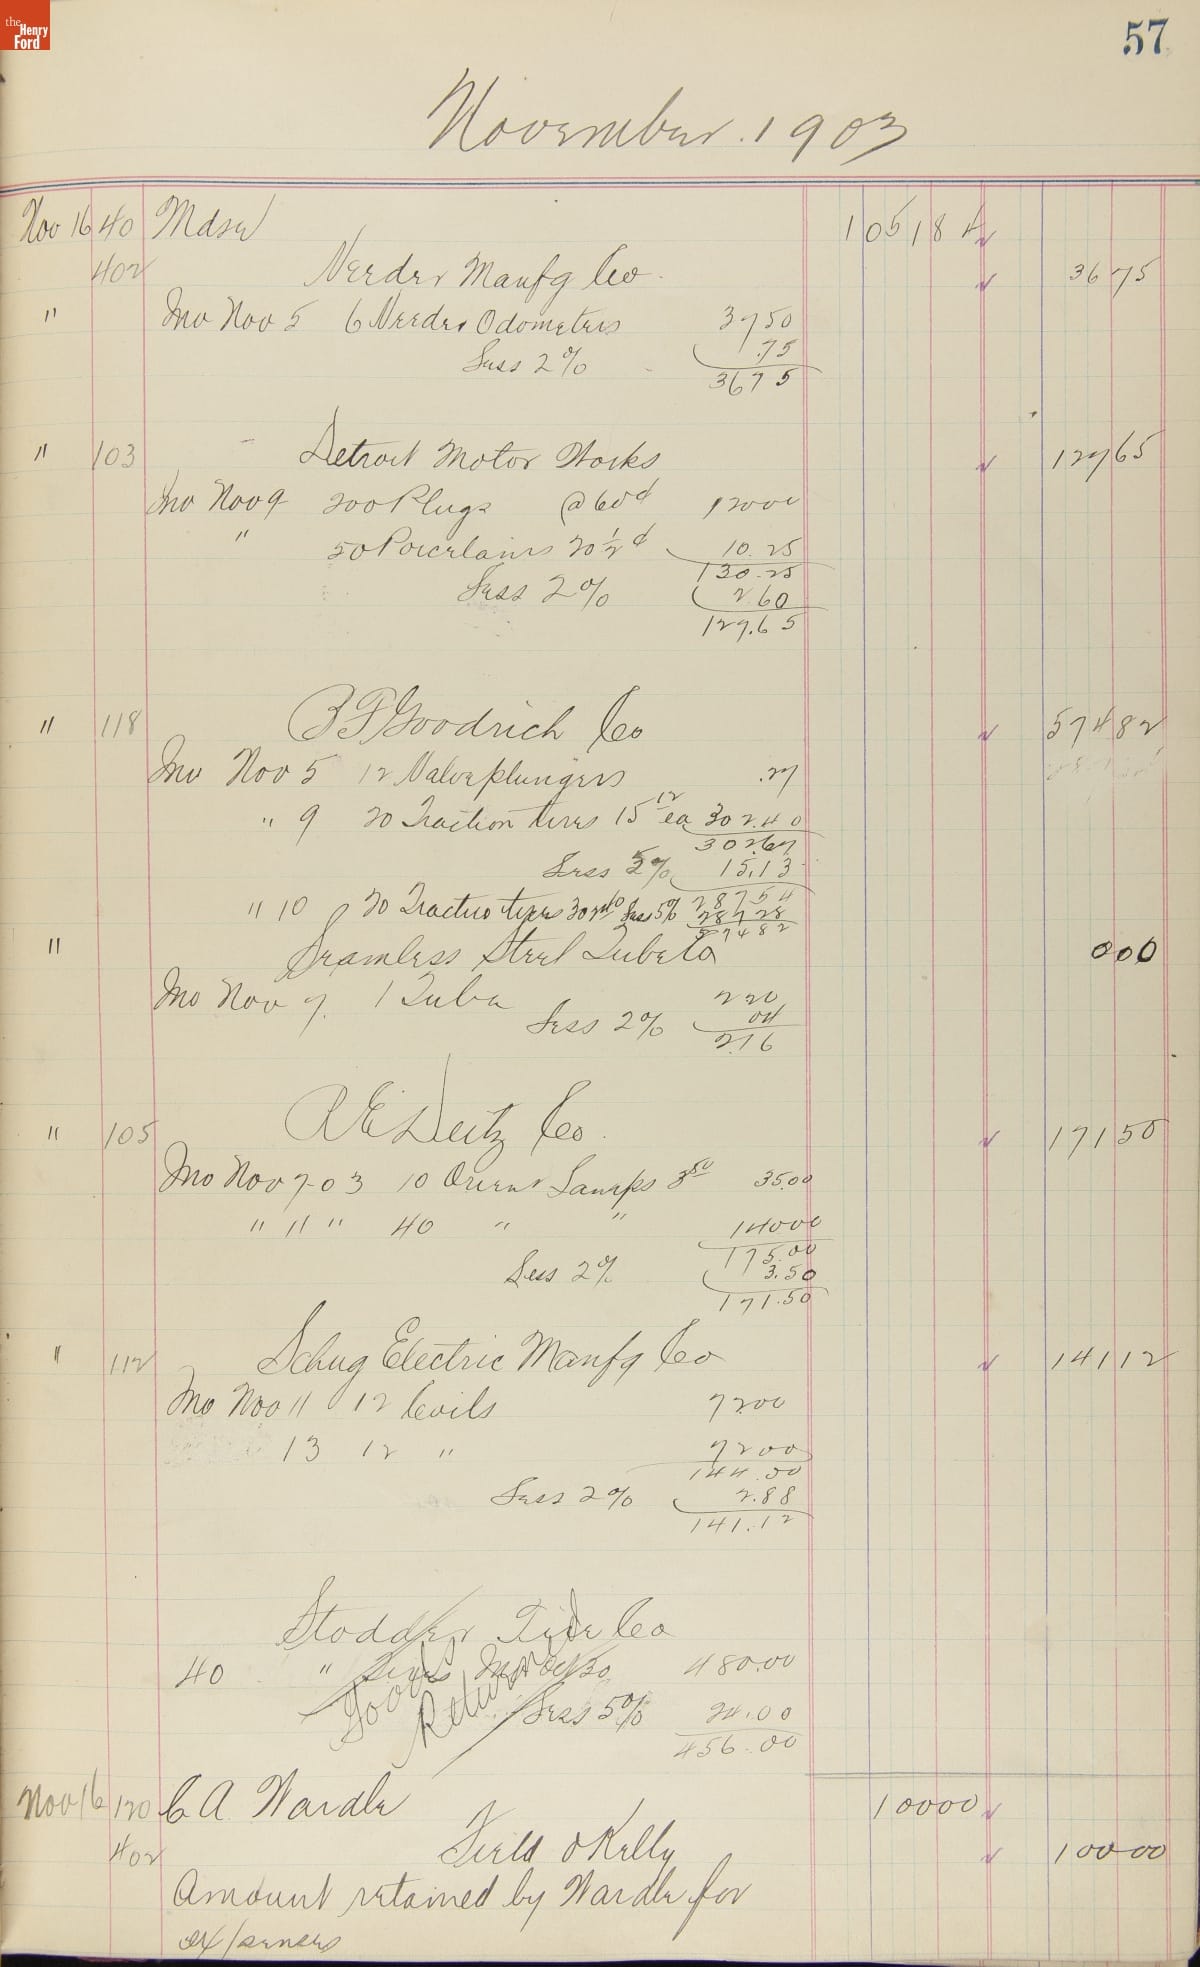 the Henry Ford
57
November. 1903
Nov 16 40 Mdse 1051 84
402 Veeder Manfg Co. 36 75
" Inv Nov 5 6 Veeder Odometers 37 50
Less 2% .75
36 75
" 103 Detroit Motor Works 127 65
Inv Nov 9 200 Plugs @ 60¢ 120 00
" 50 Porcelains 20 1/2 ¢ 10.25
130.25
Less 2% 2.60
127.65
" 118 B F Goodrich Co 574 82
Inv Nov 5 12 Valve plungers .27
" 9 20 Traction tires 15 12 ea 302.40
302.67
Less 5% 15.13
287 54
" 10 20 Traction tires 302 40 Less 5% 287 28
574 82
" Seamless Steel Tube Co 0 00
Inv Nov 7. 1 Tube 2 20
Less 2% 04
2.16
" 105 R E Deitz Co. 171 50
Inv Nov 7-03 10 Orient Lamps 3 50 35.00
" 11 " 40 " " 140 00
175.00
Less 2% 3.50
171.50
" 112 Schug Electric Manfg Co 141 12
Inv Nov 11 12 Coils 72 00
13 12 " 72 00
144.00
Less 2% 2.88
141.12
Stodder Tire Co
40 " Tires Inv Oct 30 480.00
Goods Returned
Less 5% 24.00
456.00
Nov 16 120 C A Wardle 100 00
402 Field OKelly 100 00
Amount retained by Wardle for
expenses